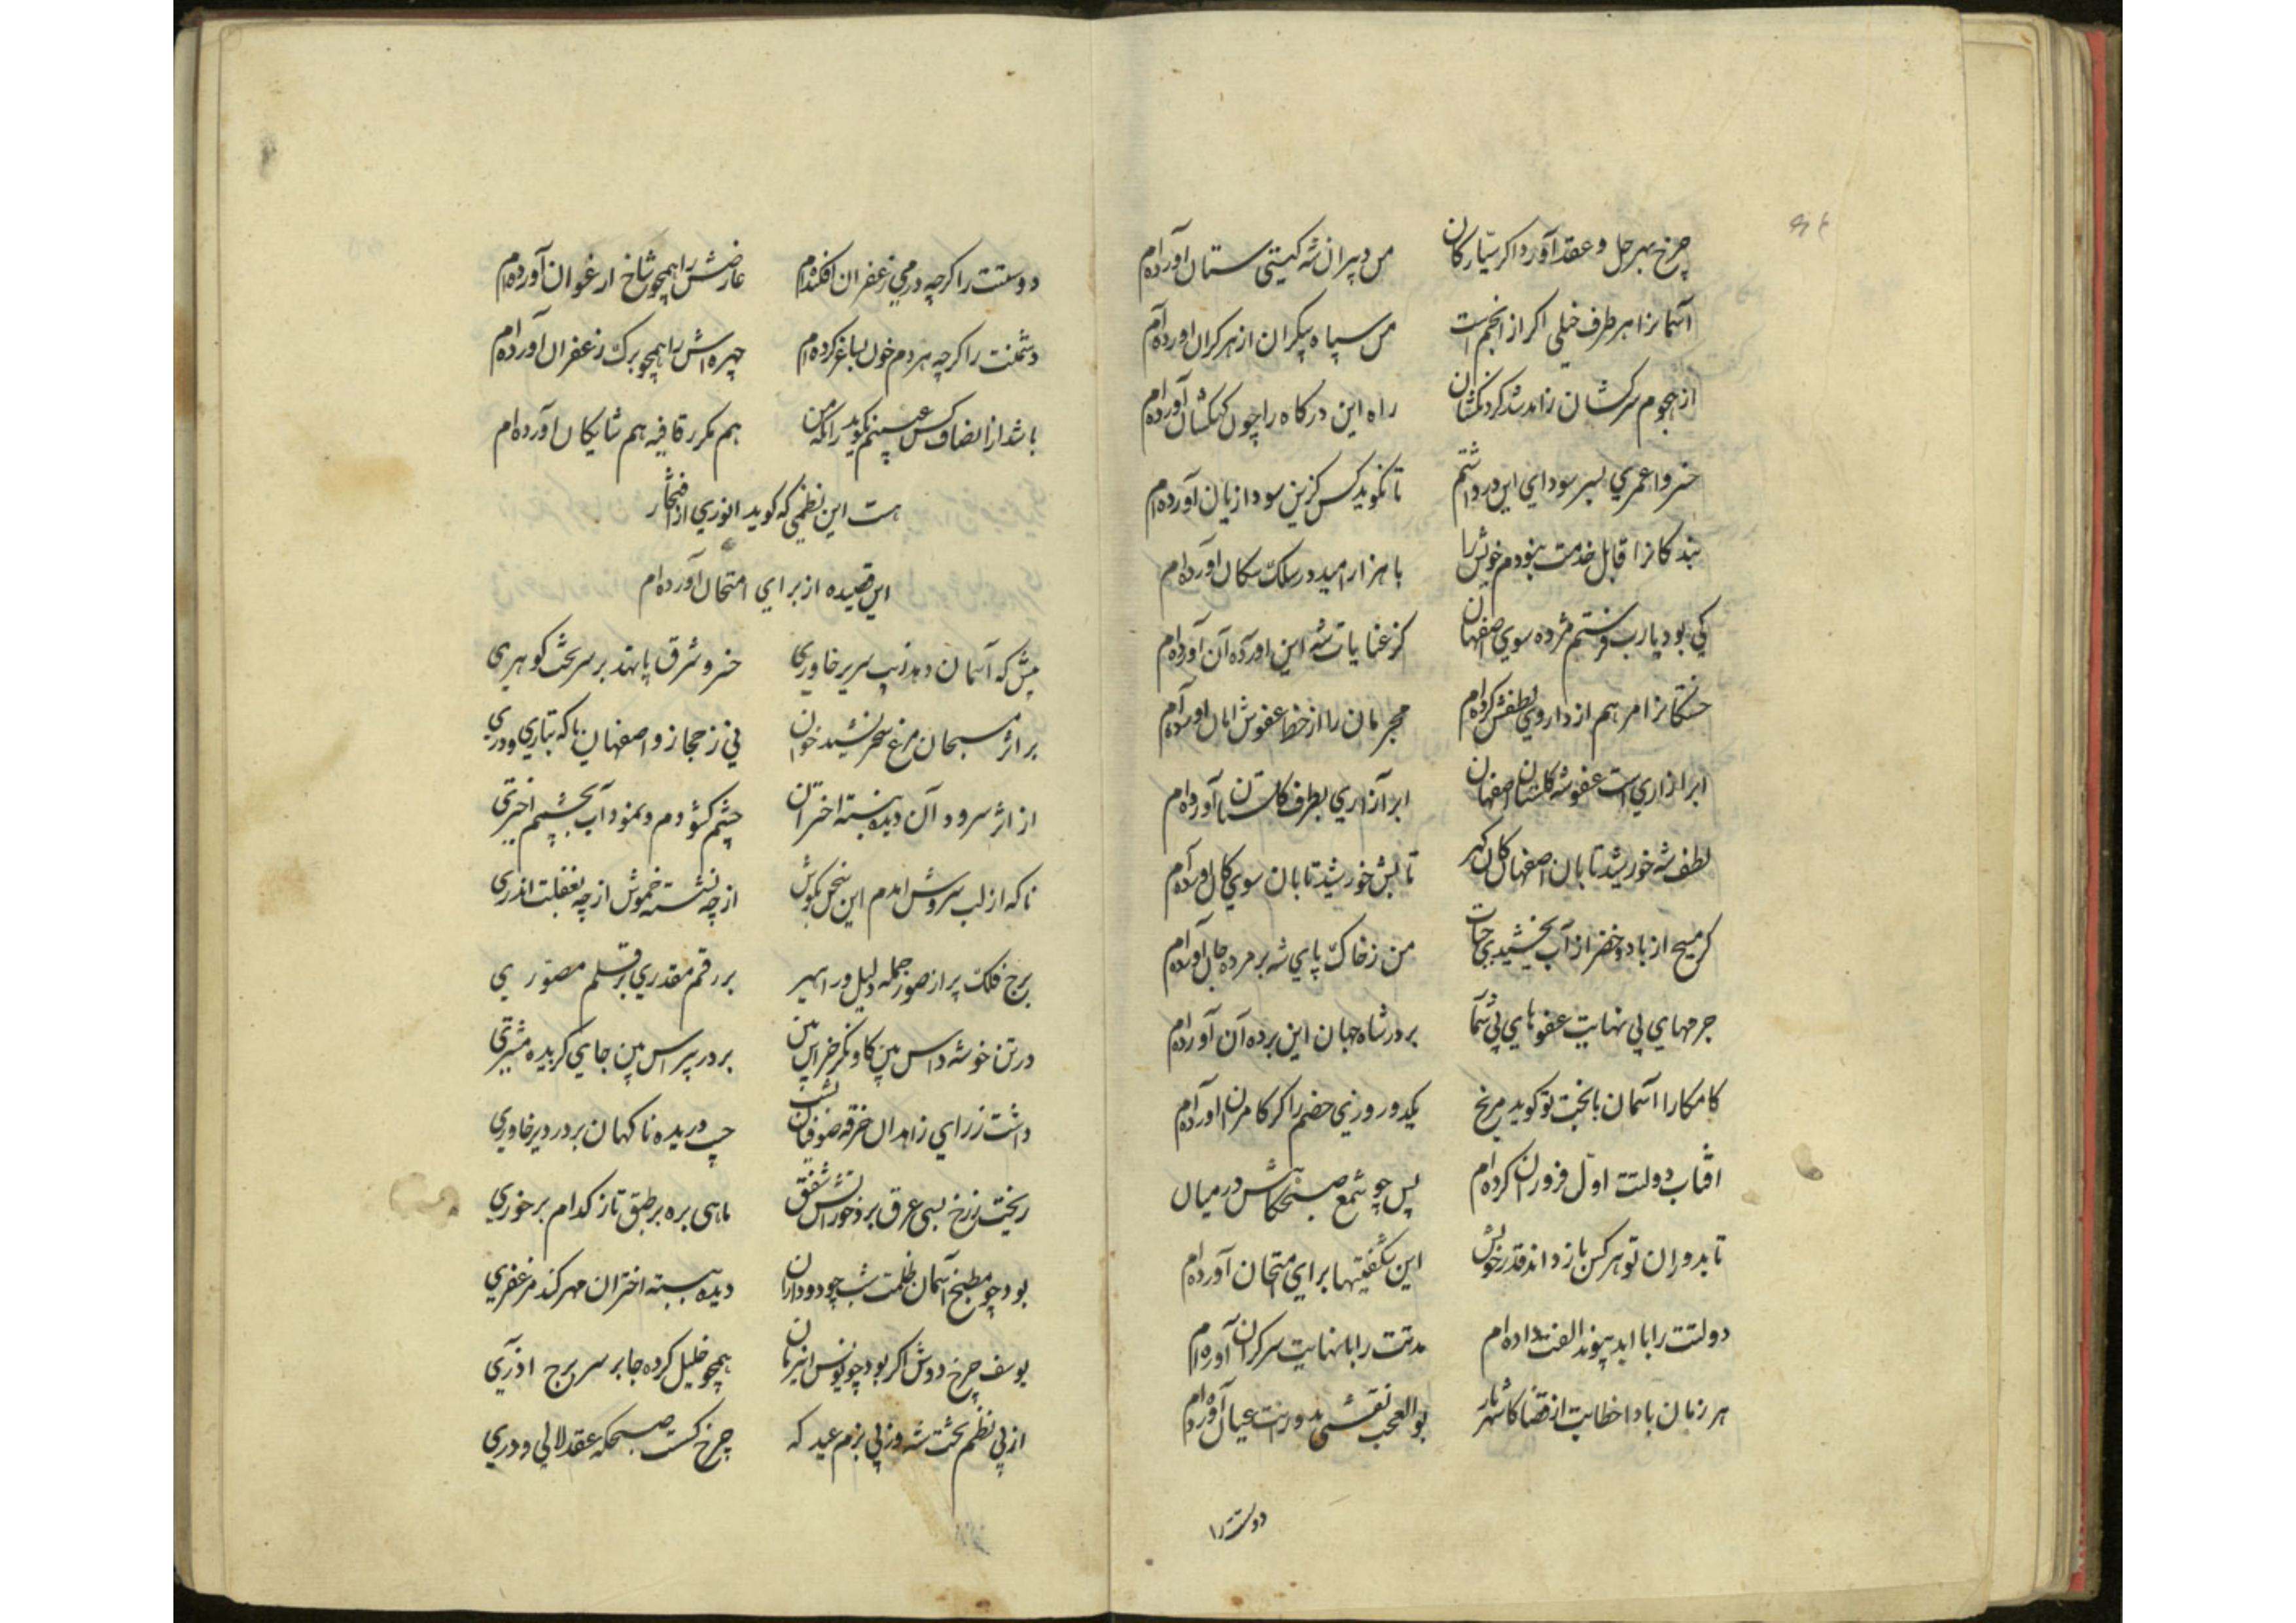 چرخ بهر حل و عقد آورد اکر سیارکان من دبیران شه کیتی ستان آورده‌ام
آسمانرا هر طرف خیلی اکر از انجم است من سپاه بیکران از هر کران آورده‌ام
از هجوم سرکشان زاند شد کردنکشان راه این درکاه را چون کهکشان آورده‌ام
خسروا عمری بسر سودای این در داشتم تا نکوید کس کزین سودا زیان آورده‌ام
بندکانرا قابل خدمت نبودم خویش را با هزار امید در سلک سکان آورده‌ام
کی بود یارب فرستم مژده سوی اصفهان کز عنایات شه این آورده آن آورده‌ام
خستکانرا مرهم از داروی لطفش کرده‌ام مجرمان را از خط عفوش امان آورده‌ام
ابر آزاری است عفو شه کلستان اصفهان ابر آزاری بطرف کلستان آورده‌ام
لطف شه خورشید تابان اصفهان کان کهر تابش خورشید تابان سوی کان آورده‌ام
کر مسیح از باد و خضر از آب بخشیدی حیات من ز خاک پای شه بر مرده جان آورده‌ام
جرمهای بی نهایت عفوهای بی شمار بر در شاه جهان این برده آن آورده‌ام
کامکارا آسمان با بخت تو کوید مرنج یکدو روزی خصم را کر کامران آورده‌ام
افتاب دولتت اول فروزان کرده‌ام پس چو شمع صبحکاهش در میان
تا بدوران تو هر کس باز داند قدر خویش این شکفتیها برای امتحان آورده‌ام
دولتت را با ابد پیوند الفت داده‌ام مدتت را با نهایت سرکران آورده‌ام
هر زمان بادا خطابت از قضا کای شهریار بوالعجب نقشی بدورانت عیان آورده‌ام
دولتت را
دوستت را کرچه در می زعفران افکنده‌ام عارضش را همچو شاخ ارغوان آورده‌ام
دشمنت را کرچه هر دم خون بساغر کرده‌ام چهره‌اش را همچو برک زعفران آورده‌ام
باشد از انصاف کس عیبم نکوید زانکه من هم مکرر قافیه هم شایکان آورده‌ام
هست این نظمی که کوید انوری از افتخار
این قصیده از برای امتحان آورده‌ام
پیش که آسمان دهد زیب سریر خاوری خسرو شرق پا نهد بر سر تخت کوهری
بر اثر مسبحان مرغ سحر نشید خوان نی ز حجاز و اصفهان با که بتازی و دری
از اثر سرود آن دیده ببسته اختران چشم کشودم و نمود آب بچشم اختری
ناکه از لب سروش امدم این سخن بکوش از چه نشسته خموش از چه بغفلت اندری
برج فلک پر از صور جمله دلیل و راهبر بر رقم مقدری بر قلم مصوری
در تن خوشه داس بین کاو نکر خراس بین بر در پیر اس بین جای کزیده مشتری
داشت ز رای زاهدان خرقه صوفیان شب جیب دریده ناکهان بر در دیر خاوری
ریخت ز رخ بسی عرق بر دخور آتش شفق ماهی بره بر طبق تا ز کدام برخوری
بود چو مطبخ آسمان ظلمت شب چو دود آن دیده ببسته اختران مهر کند مزعفری
یوسف چرخ دوش اکر بود چو یونس همچو خلیل کرده جا بر سر برج اذری
از پی نظم تخت شه وز پی بزم عید که چرخ کسست صبحکه عقد لالی و دری